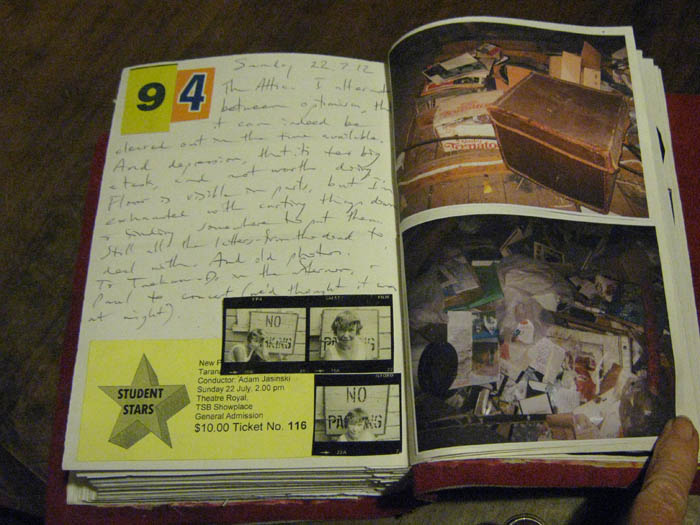 94
Sunday 22.7.12
The Attic. I alternate
between optimism, that
it can indeed be
cleared out in the time available.
And depression, that it's too big
a task, and not worth doing.
Floor is visible in parts, but I'm
exhausted with carting things down
& finding somewhere to put them.
Still all the letters from the dead to
deal with. And old photos.
To in the afternoon,
Paul to concert (we'd thought it was
at night).
NO
PARKING
NO
PA
NO
PARKING
STUDENT
STARS
New P
Taran
Conductor: Adam Jasinski
Sunday 22 July, 2.00 pm
Theatre Royal,
TSB Showplace
General Admission
$10.00 Ticket No. 116